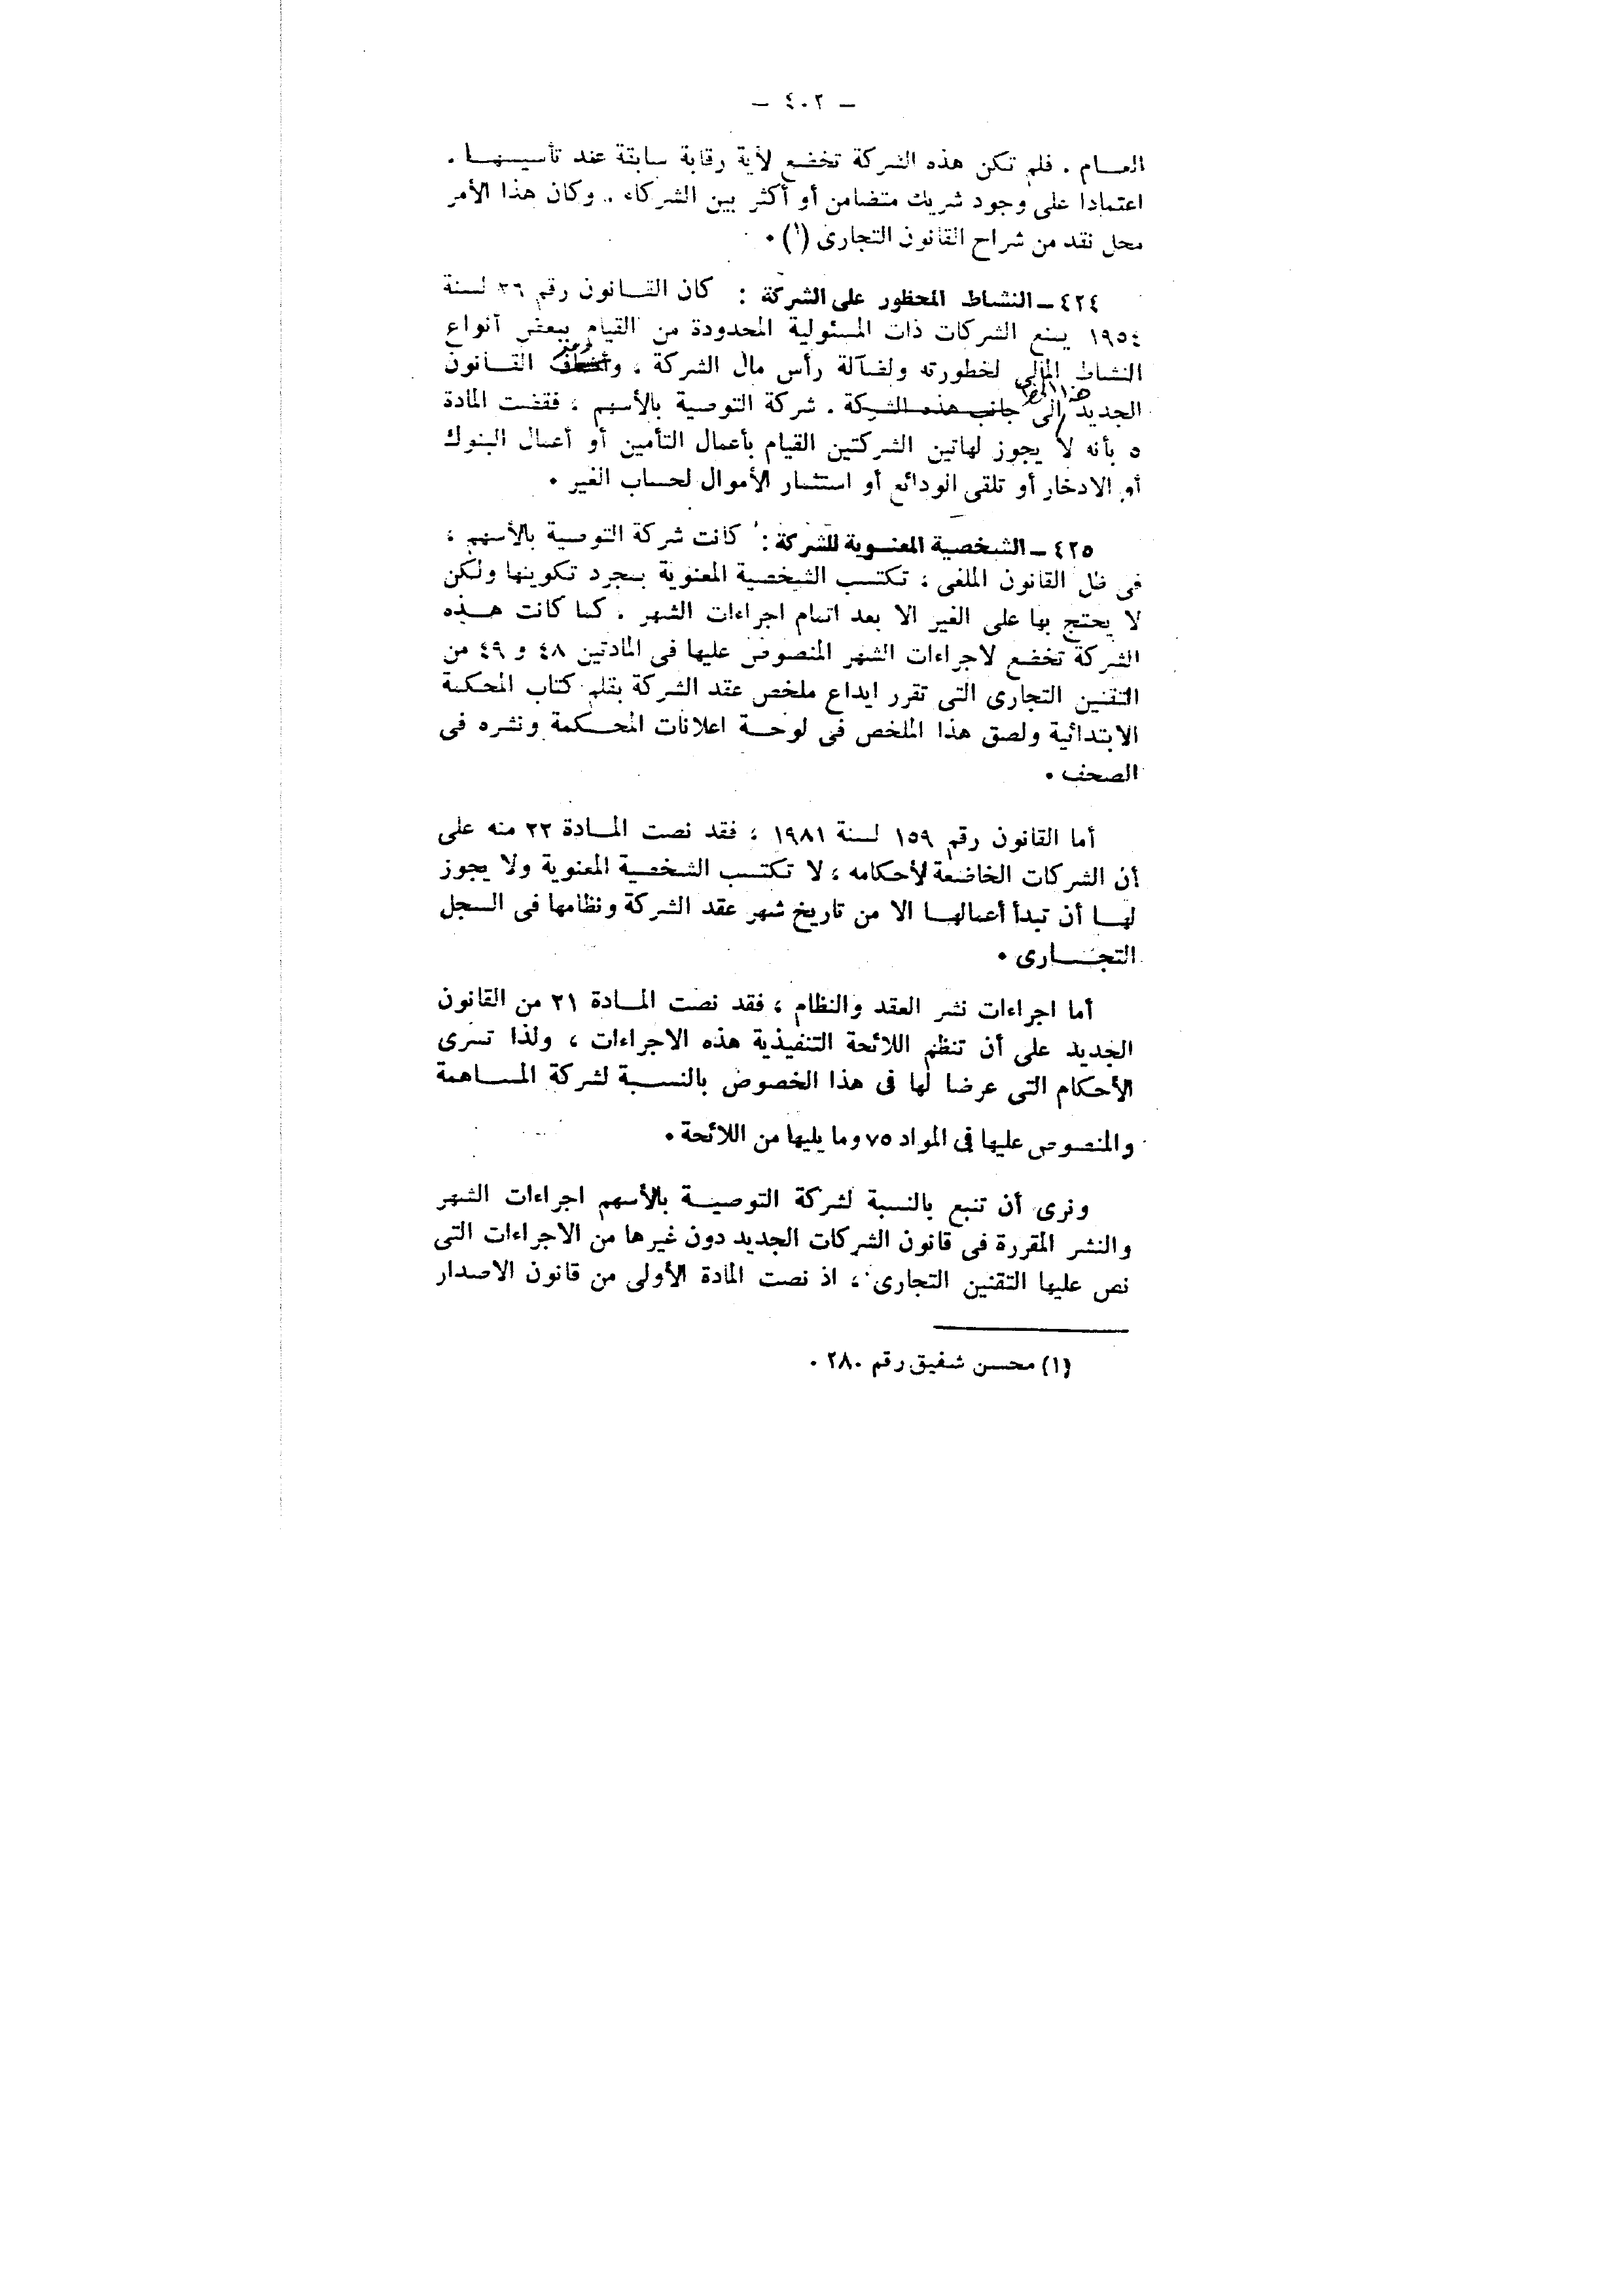 — ٤٠٢ —
العــام . فلم تكن هذه الشركة تخضع لأية رقابة سابقة عند تأسيسهــا .
اعتمادا على وجود شريك متضامن أو أكثر بين الشركاء . وكان هذا الأمر
محل نقد من شراح القانون التجارى (١) .
٤٢٤ ــ النشاط المحظور على الشركة : كان القــانون رقم ٢٦ لسنة
١٩٥٤ يمنع الشركات ذات المسئولية المحدودة من القيام ببعض أنواع
النشاط المالى لخطورته ولضآلة رأس مال الشركة ، القــانون
هذا الحظر
الجديد الى جانب هذه الشركة . شركة التوصية بالأسهم ؛ فقضت المادة
٥ بأنه لا يجوز لهاتين الشركتين القيام بأعمال التأمين أو أعمال البنوك
أو الادخار أو تلقى الودائع أو استثمار الأموال لحساب الغير .
٤٢٥ ــ الشخصية المعنــوية للشركة : كانت شركة التوصية بالأسهم ؛
فى ظل القانون الملغى ؛ تكتسب الشخصية المعنوية بمجرد تكوينها ولكن
لا يحتج بها على الغير الا بعد اتمام اجراءات الشهر . كما كانت هــذه
الشركة تخضع لاجراءات الشهر المنصوص عليها فى المادتين ٤٨ و ٤٩ من
التقنين التجارى التى تقرر ايداع ملخص عقد الشركة بقلم كتاب المحكمة
الابتدائية ولصق هذا الملخص فى لوحــة اعلانات المحــكمة ونشره فى
الصحف .
أما القانون رقم ١٥٩ لسنة ١٩٨١ ؛ فقد نصت المــادة ٢٢ منه على
أن الشركات الخاضعة لأحكامه ؛ لا تكتسب الشخصية المعنوية ولا يجوز
لهــا أن تبدأ أعمالهــا الا من تاريخ شهر عقد الشركة ونظامها فى السجل
التجــارى .
أما اجراءات نشر العقد والنظام ؛ فقد نصت المــادة ٢١ من القانون
الجديد على أن تنظم اللائحة التنفيذية هذه الاجراءات ، ولذا تسرى
الأحكام التى عرضا لها فى هذا الخصوص بالنســبة لشركة المســاهمة
والمنصوص عليها فى المواد ٧٥ وما يليها من اللائحة .
ونرى أن تتبع بالنسبة لشركة التوصيــة بالأسهم اجراءات الشهر
والنشر المقررة فى قانون الشركات الجديد دون غيرها من الاجراءات التى
نص عليها التقنين التجارى ؛ اذ نصت المادة الأولى من قانون الاصدار
(١) محسن شفيق رقم ٢٨٠ .